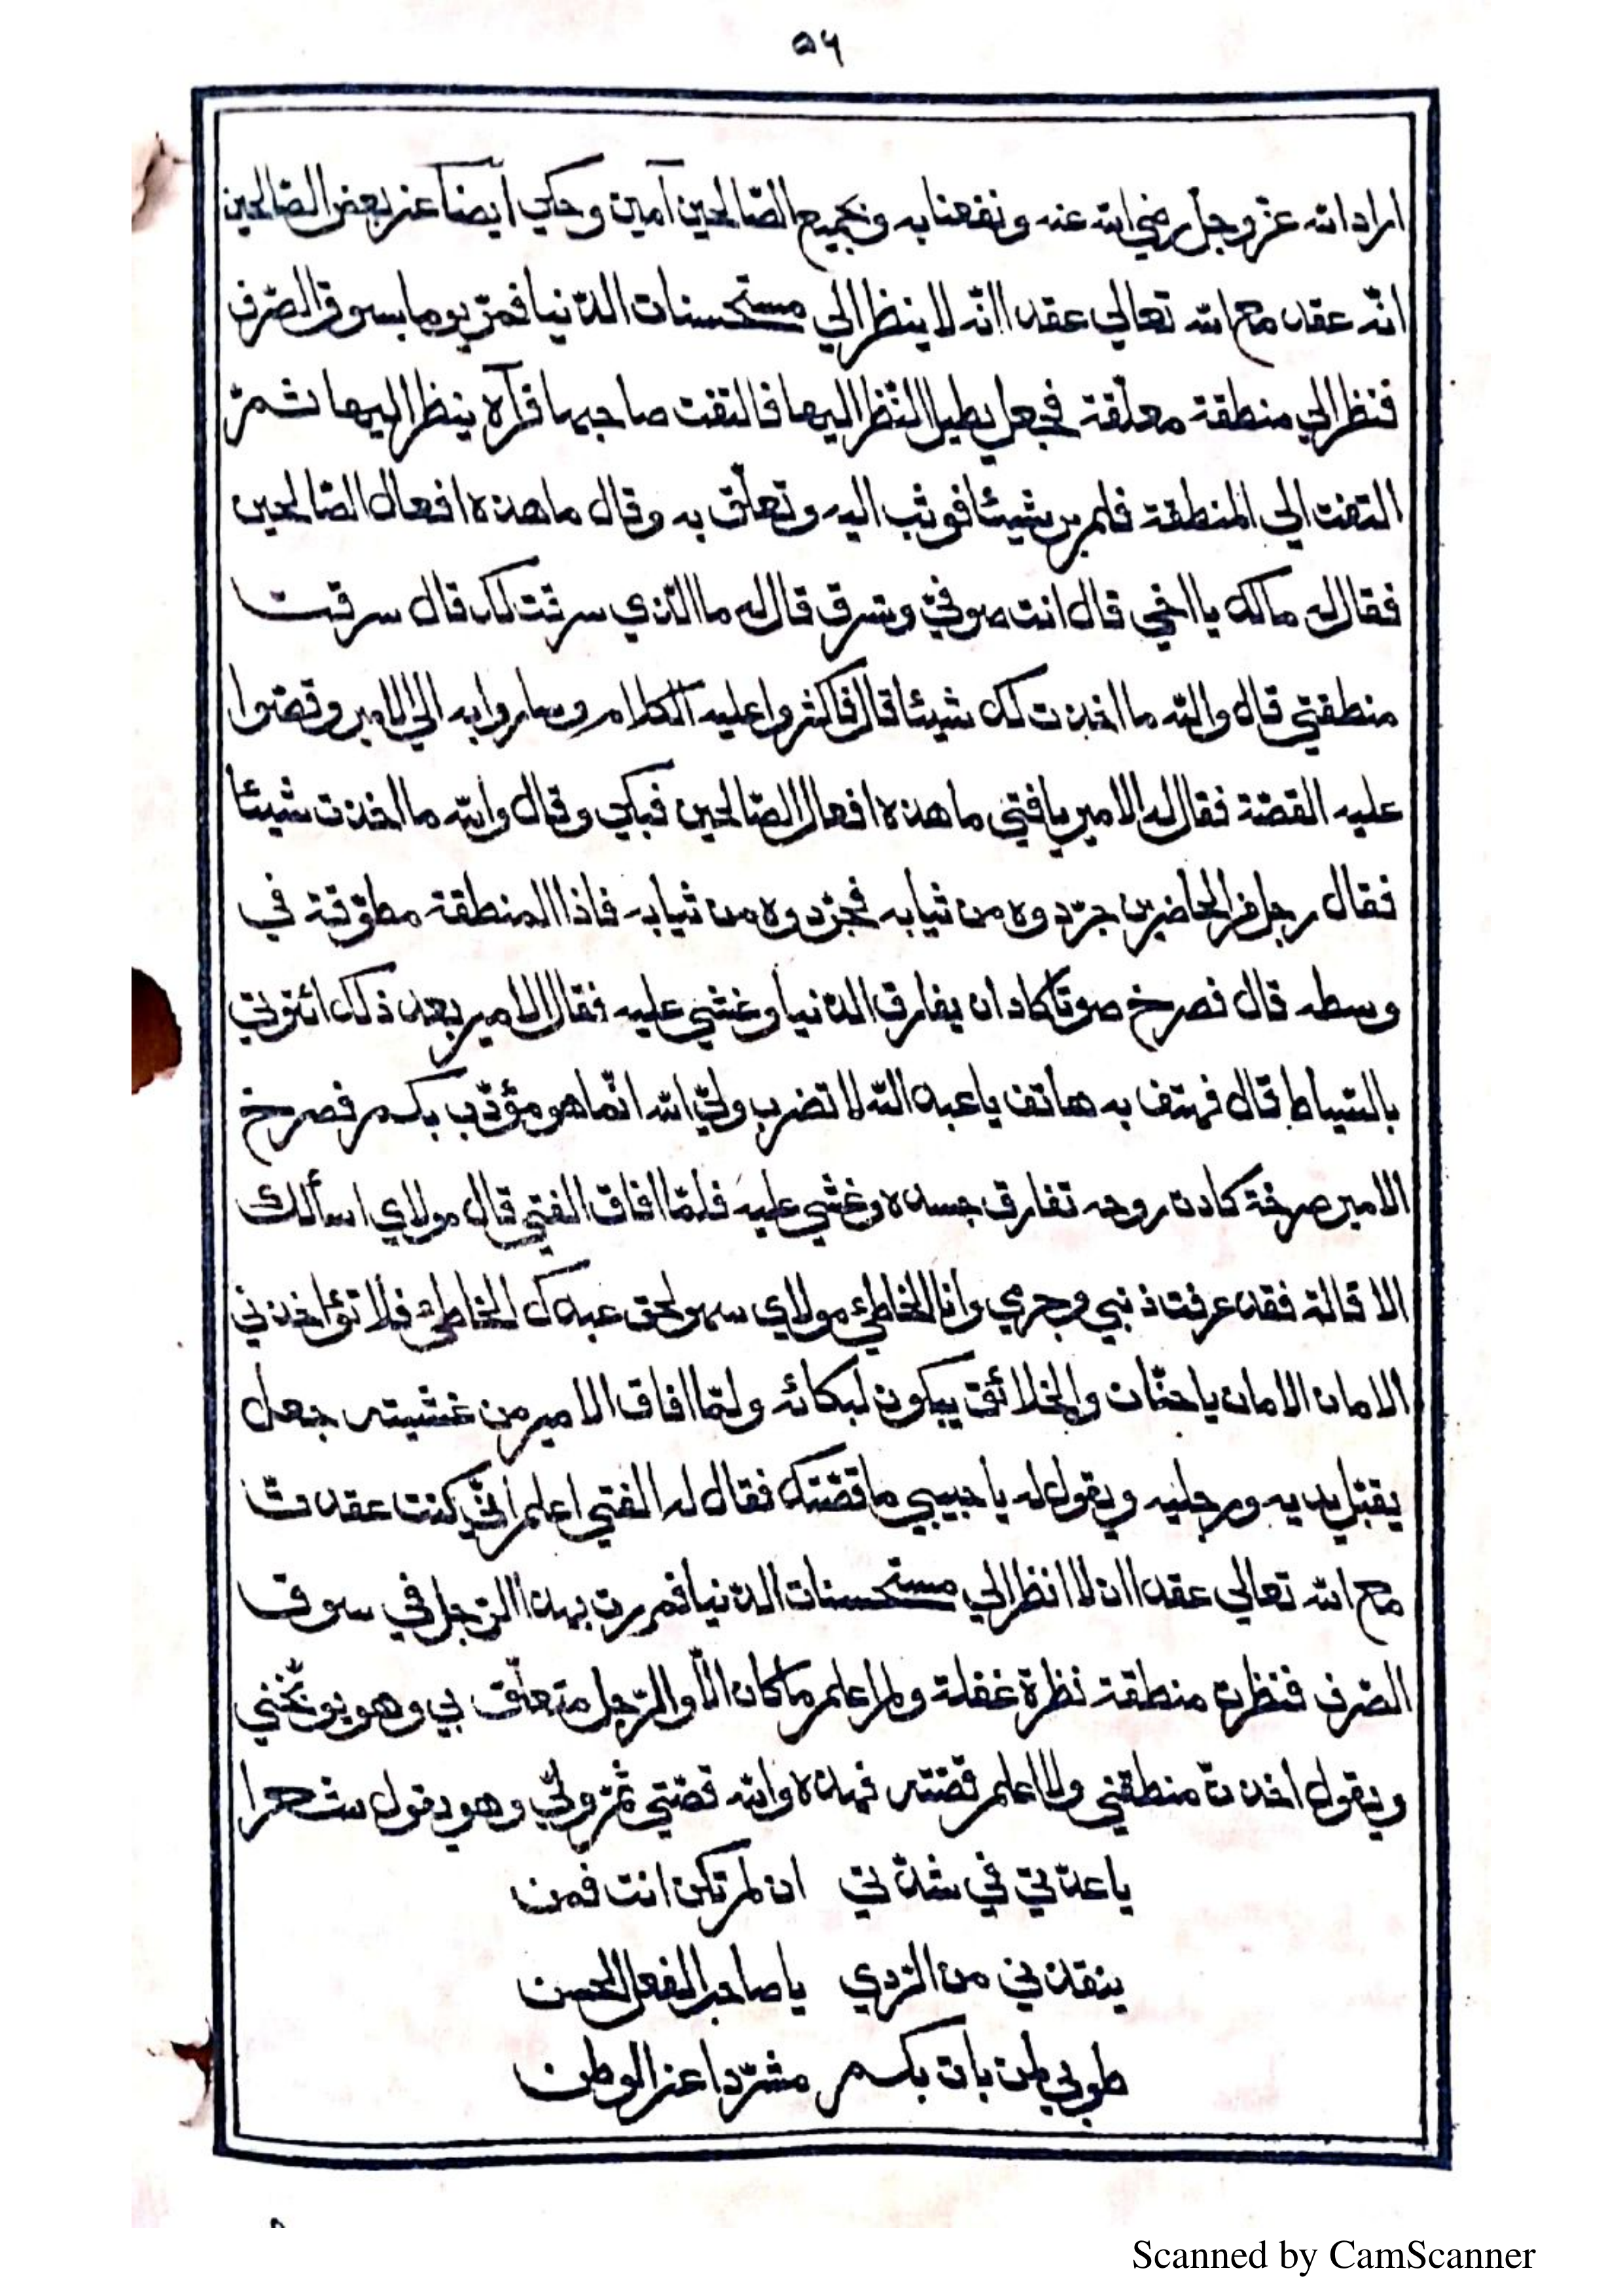 ٥٦
اراد الله عزّ وجلّ رضي الله عنه ونفعنا به وبجميع الصّالحين آمين وحكي ايضاً عن بعض الصّالحين
انّه عقد مع الله تعالي عقدا انّه لا ينظر الي مستحسنات الدّنيا فمرّ يوما بسوق الصّرف
فنظر الي منطقة معلّقة فجعل يطيل النّظر اليها فالتفت صاحبها فرآه ينظر اليها ثمّ
التفت الي المنطقة فلم ير شيئا فوثب اليه وتعلّق به وقال ما هذه افعال الصّالحين
فقال له مالك يا اخي قال انت صوفيّ وتسرق قال له ما الّذي سرقت لك قال سرقت
منطقتي قال والله ما اخذت لك شيئا قال فاكثروا عليه الكلام وساروا به الي الامير وقصّوا
عليه القصّة فقال له الامير يا فتي ما هذه افعال الصّالحين فبكي وقال والله ما اخذت شيئا
فقال رجل من الحاضرين جرّدوه من ثيابه فجرّدوه من ثيابه فاذا المنطقة مطوّقة في
وسطه قال فصرخ صوتا كاد ان يفارق الدّنيا وغشي عليه فقال الامير بعد ذلك ائتوني
بالسّياط قال فهتف به هاتف يا عبد الله لا تضرب وليّ الله انّما هو مؤدّب بكم فصرخ
الامير صرخة كادت روحه تفارق جسده وغشي عليه فلمّا افاق الفتي قال مولاي اسألك
الاقالة فقد عرفت ذنبي وجرمي وانا الخاطئ مولاي سهو لحق عبدك الخاطئ فلا تؤاخذني
الامان الامان يا حنّان والخلائق يبكون لبكائه ولمّا افاق الامير من غشيته جعل
يقبّل يديه ورجليه ويقول له يا حبيبي ما قصّتك فقال له الفتي اعلم انّي كنت عقدت
مع الله تعالي عقدا ان لا انظر الي مستحسنات الدّنيا فمررت بهذا الرّجل في سوق
الصّرف فنظرت منطقة نظرة غفلة ولم اعلم ما كان الّا والرّجل متعلّق بي وهو يوبّخني
ويقول اخذت منطقتي ولا اعلم قصّته فهذه والله قصّتي ثمّ ولّي وهو يقول شعرا
يا عدّتي في شدّتي ان لم تكن انت فمن
ينقذني من الرّدي يا صاحب الفعل الحسن
طوبي لمن بات بكم مشرّدا عن الوطن
Scanned by CamScanner